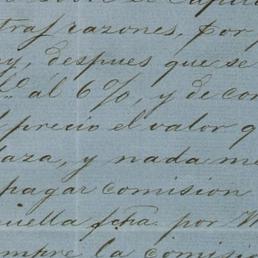 otras razones, por
y, despues que se
al 6%, y de con
l precio el valor q
laza, y nada m
pagar comision
uella fcha. por
mpre la comisio